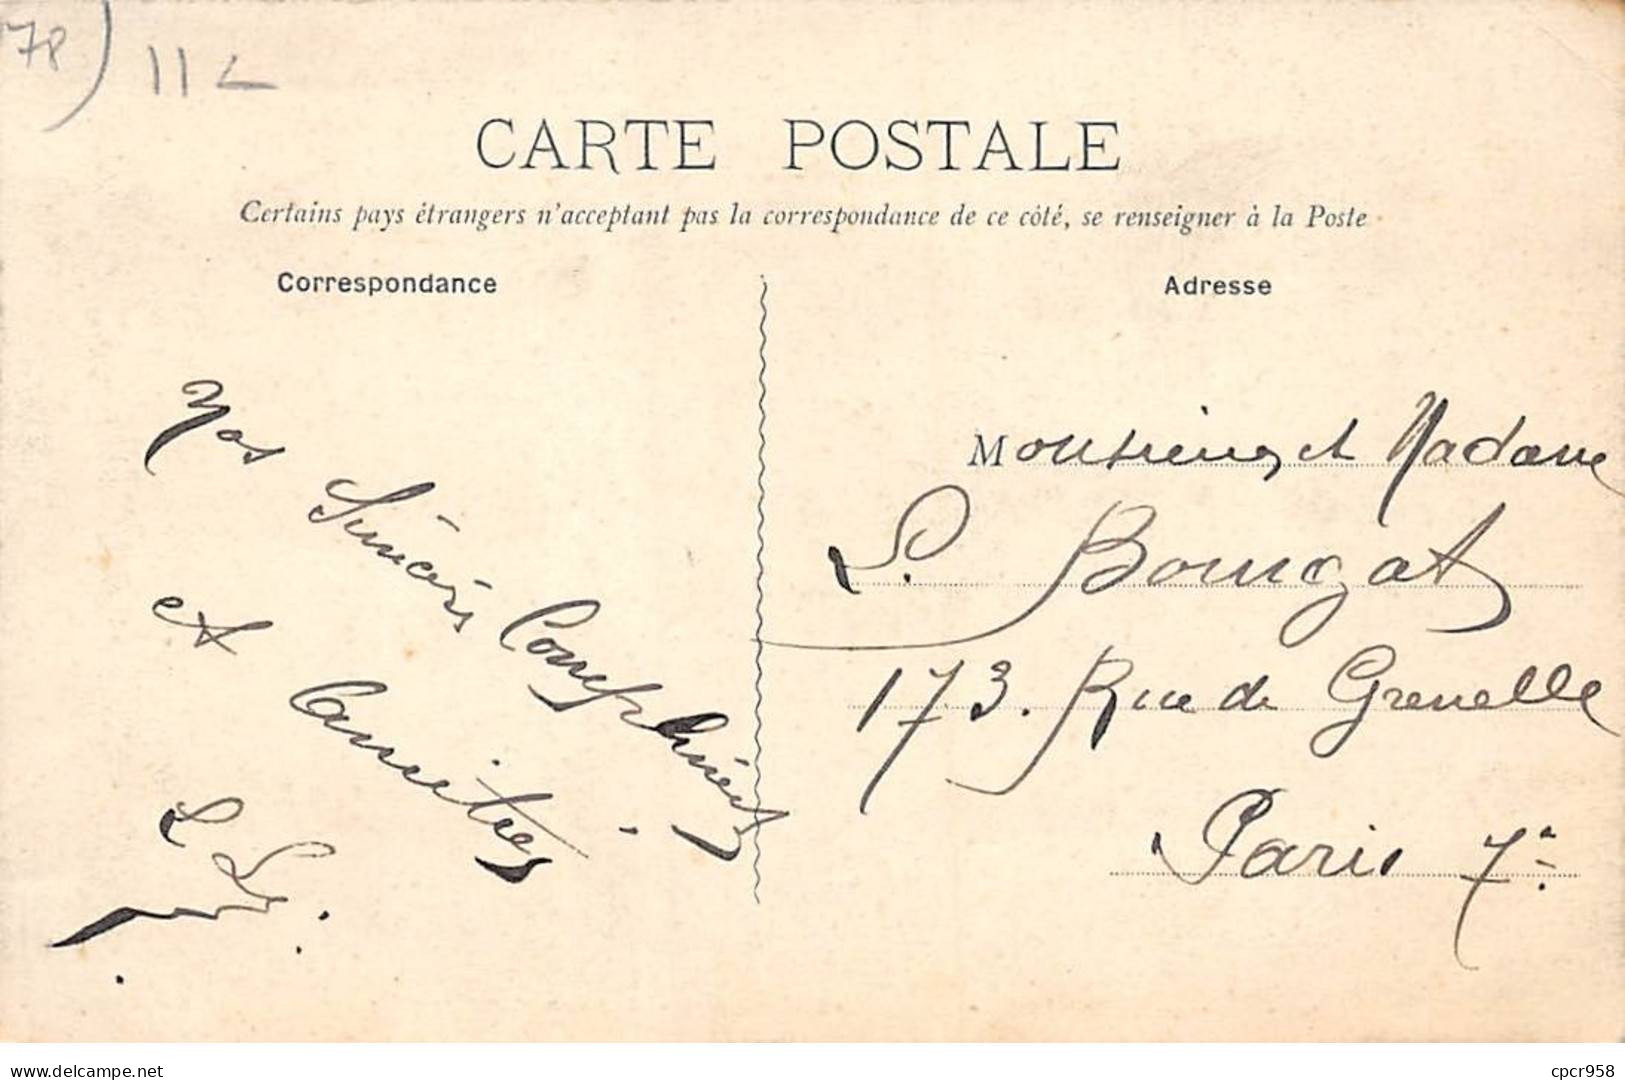 78) 11
CARTE POSTALE
Certains pays étrangers n'acceptent pas la correspondance de ce côté, se renseigner à la Poste
Correspondance
Adresse
Nos
Sincères Compliments
et
Amitiés.
Monsieur et Madame
L. Bourgat
173. Rue de Grenelle
Paris 7e
www.delcampe.net
cpcr958